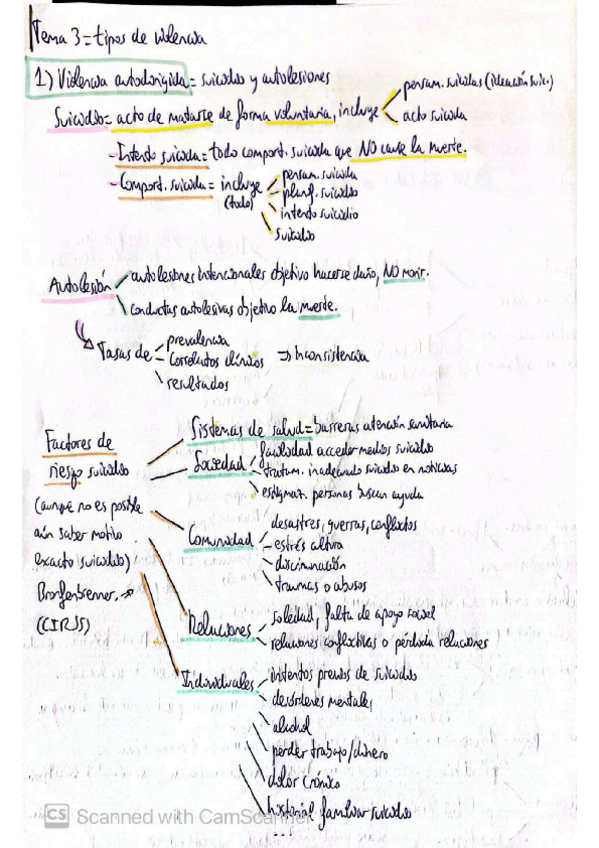 Tema 3 = tipos de violencia
1) Violencia autodirigida = suicidio y autolesiones
Suicidio = acto de matarse de forma voluntaria, incluye
pensam. suicidas (ideación suic.)
acto suicida
- Intento suicida = todo comport. suicida que NO cause la muerte.
- Comport. suicida = incluye (todo)
pensam. suicida
planif. suicidio
intento suicidio
suicidio
Autolesión
autolesiones intencionales objetivo hacerse daño, NO morir.
conductas autolesivas objetivo la muerte.
Tasas de
prevalencia
correlatos clínicos ⇒ Inconsistencia
resultados
Factores de
riesgo suicidio
(aunque no es posible
aún saber motivo
exacto suicidio)
Bronfenbrenner
(CIRSS)
Sistemas de salud = barreras atención sanitaria
Sociedad
facilidad acceder medios suicidio
tratam. inadecuado suicidio en noticias
estigmat. personas buscan ayuda
Comunidad
desastres, guerras, conflictos
estrés
discriminación
traumas o abusos
Relaciones
soledad, falta de apoyo social
relaciones conflictivas o pérdida relaciones
Individuales
intentos previos de suicidio
desórdenes mentales
alcohol
perder trabajo/dinero
dolor crónico
historial familiar suicidio
...
CS Scanned with CamScanner